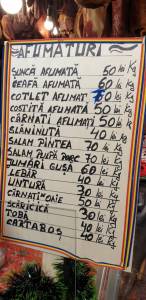 AFUMATURI
ȘUNCĂ AFUMATĂ 50 lei Kg
CEAFĂ AFUMATĂ 60 lei Kg
COTLET AFUMAT 60 lei Kg
COSTIȚĂ AFUMATĂ 50 lei Kg
CÂRNAȚI AFUMAȚI 50 lei Kg
SLĂNINUȚĂ 40 lei Kg
SALAM PINTEA 70 lei Kg
SALAM PULPĂ PORC 70 lei Kg
JUMĂRI GUȘĂ 60 lei Kg
LEBĂR 40 lei Kg
UNTURĂ 30 lei Kg
CÎRNAȚI OAIE 50 lei Kg
SCĂRICICĂ 30 lei Kg
TOBĂ 40 lei Kg
CALTABOȘ 40 lei Kg